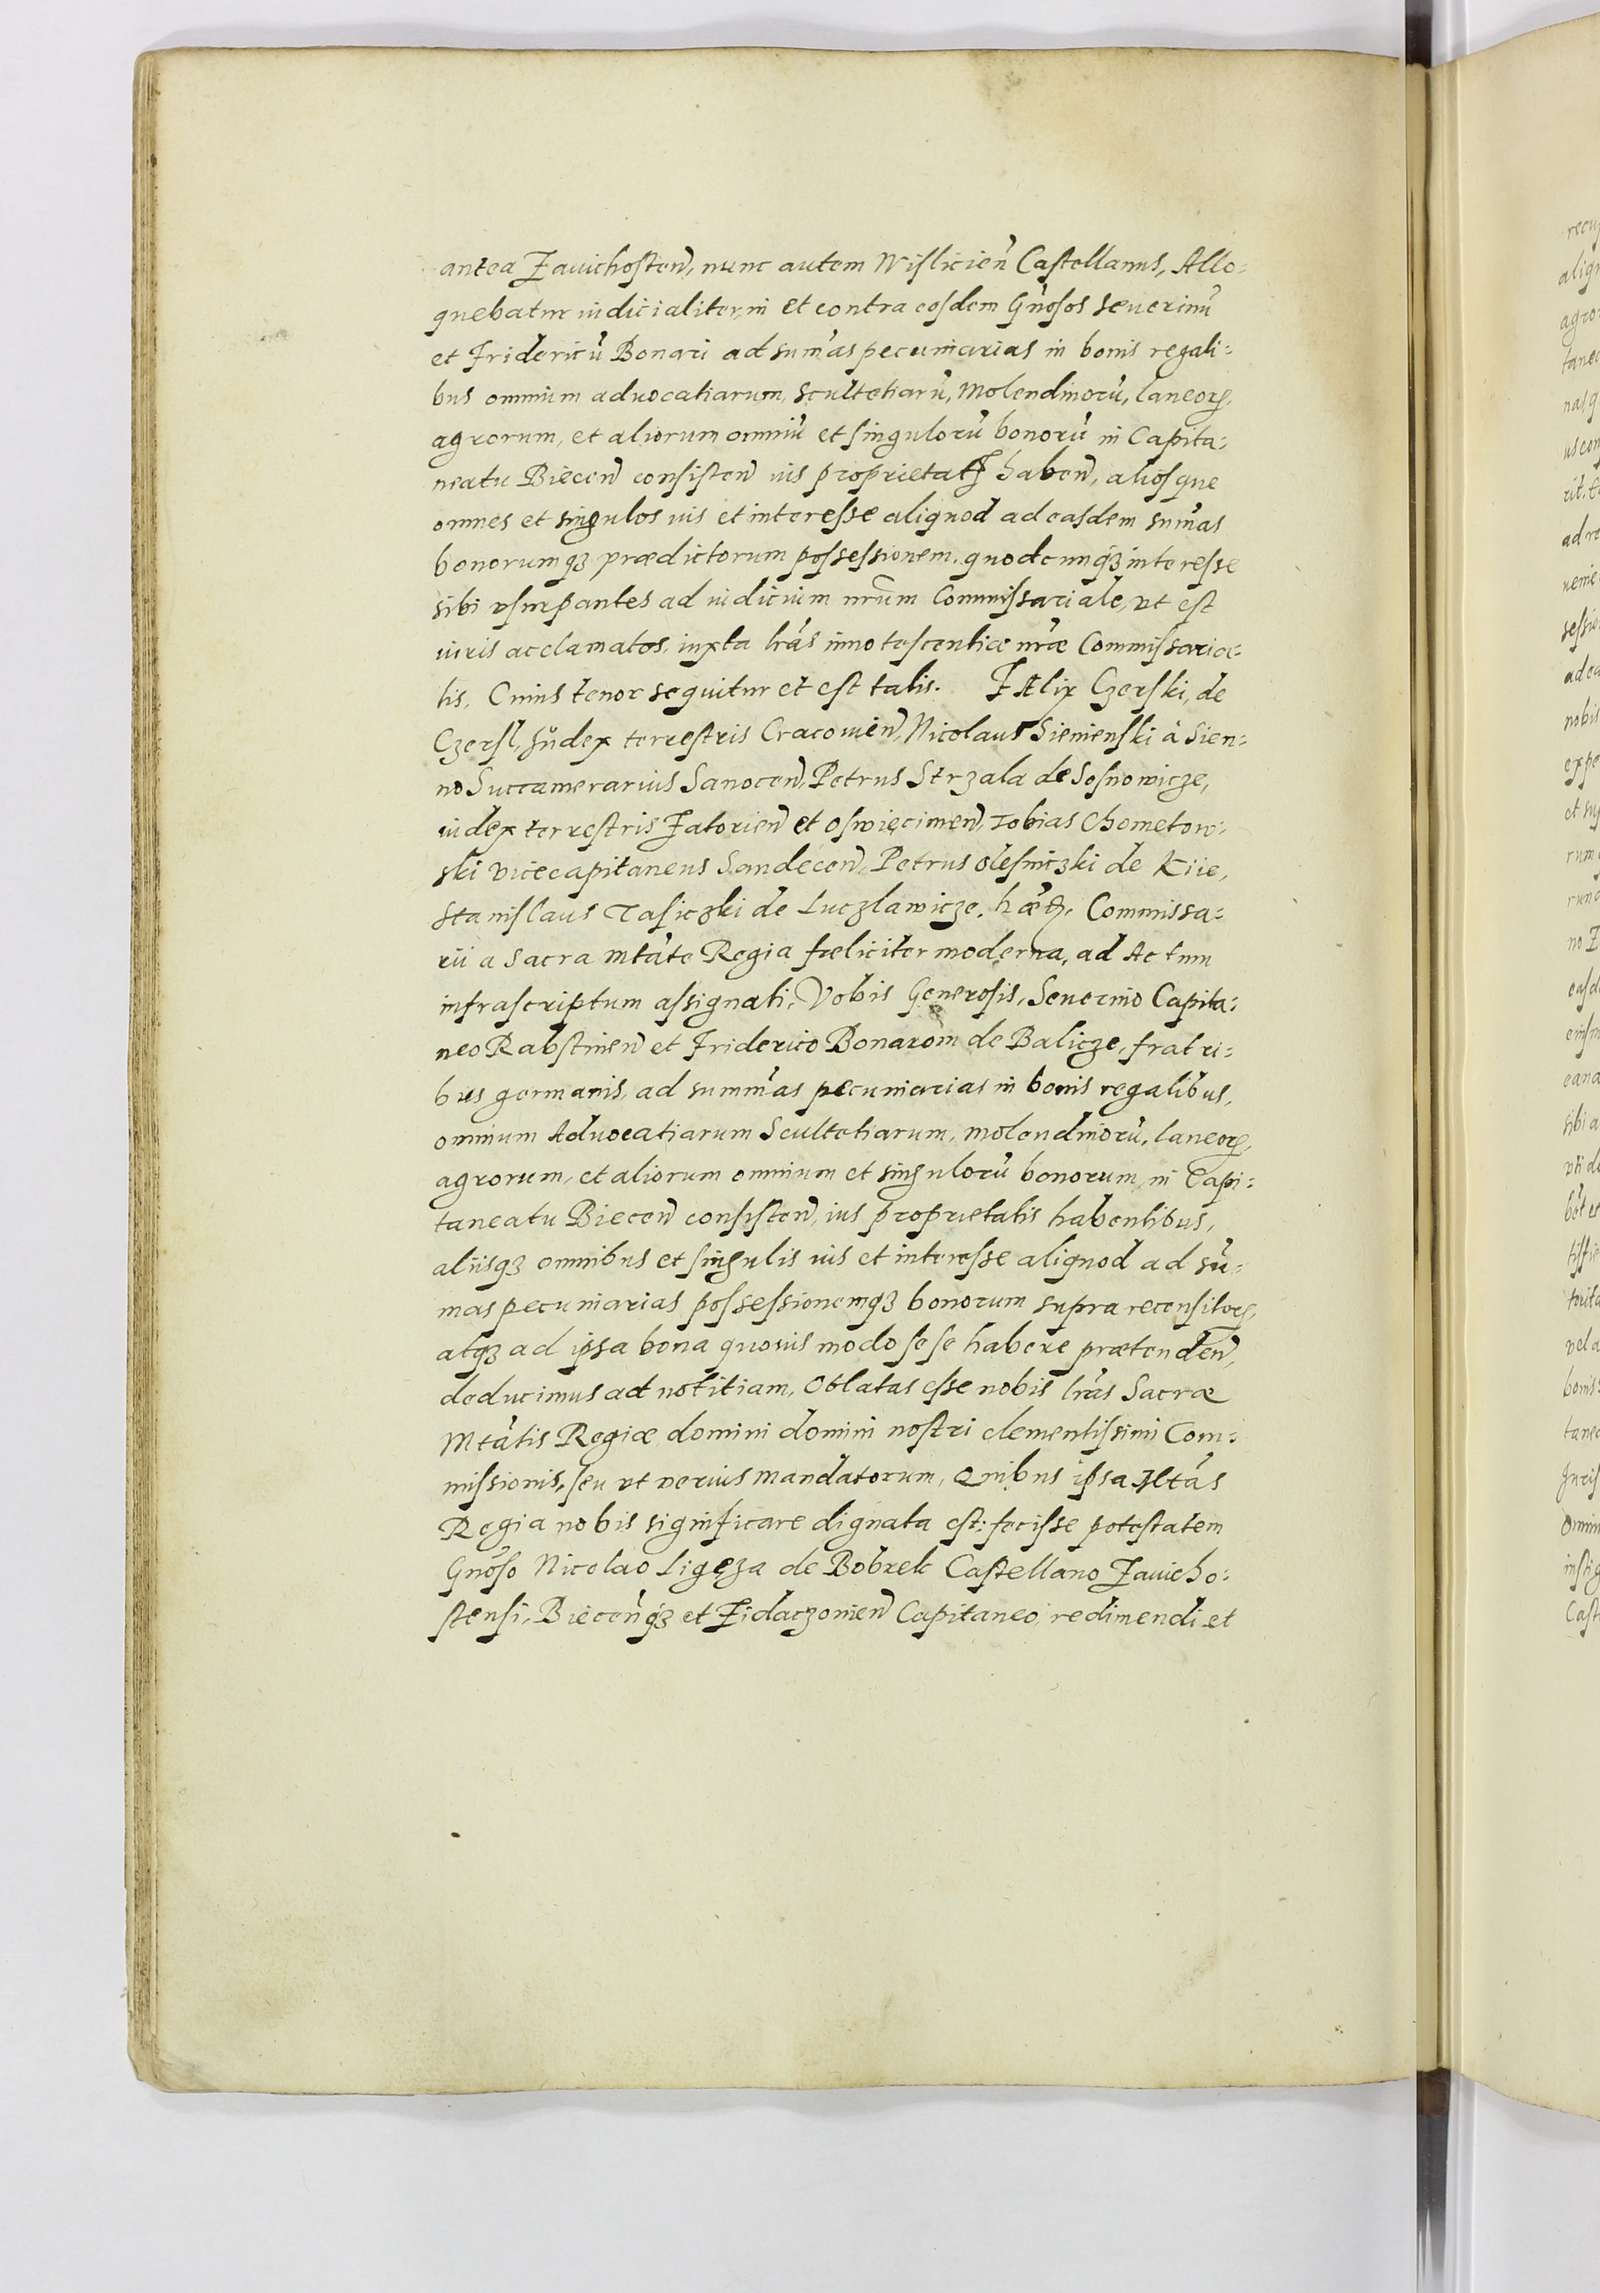 antea Zauichosteñ, nunc autem Wislicieñ Castellanus, Allo:
quebatur iudicialiter, in et contra eosdem Gnosos Seuerinū
et Fridericū Bonari ad sum̄as pecuniarias in bonis regali:
bus omnium aduocatiarum, scultetiarū, Molendinorū, laneoꝝ,
agrorum, et aliorum omniū et singulorū bonorū in Capita:
neatu Bieceñ consisteñ ius proprietatꝭ habeñ, aliosque
omnes et singulos ius et interesse aliquod ad easdem sum̄as
bonorumqꝫ prædictorum possessionem, quodcunqꝫ interesse
sibi vsurpantes ad iudicium nrūm Commissariale, vt est
iuris acclamatos, iuxta lrās innotescentiæ nrāe Commissaria:
lis, Cuius tenor sequitur et est talis. Fælix Czerski, de
Czersk, Iudex terrestris Cracouieñ, Nicolaus Sienienski à Sien:
no Succamerarius Sanoceñ, Petrus Strzala de Sosnowicze,
iudex terrestris Zatorieñ et Oswięcimeñ, Tobias Chometow:
ski vicecapitaneus Sandeceñ, Petrus Olesniczki de Kiie,
Stanislaus Tasiczki de Luczlawicze, hæꝝ, Commissa:
rii a Sacra Mtāte Regia fœliciter moderna, ad Actum
infrascriptum assignati, Vobis Generosis, Seuerino Capita:
neo Rabstineñ et Friderico Bonarom de Balicze, fratri:
bus germanis, ad summ̄as pecuniarias in bonis regalibus,
omnium Aduocatiarum Scultetiarum, molendinorū, laneoꝝ,
agrorum, et aliorum omnium et singulorū bonorum, in Capi:
taneatu Bieceñ consisteñ, ius proprietatis habentibus,
aliisqꝫ omnibus et singulis ius et interesse aliquod ad sū:
mas pecuniarias possessionemqꝫ bonorum supra recensitoꝝ,
atqꝫ ad ipsa bona quouis modo sese habere prætendeñ,
deducimus ad notitiam, Oblatas esse nobis lrās Sacræ
Mtātis Regiæ domini domini nostri clementissimi Com:
missionis, seu vt verius mandatorum, Quibus ipsa Mtās
Regia nobis significare dignata est: fecisse potestatem
Gnoso Nicolao Ligęza de Bobrek Castellano Zauicho:
stensi, Bieceñqꝫ et Zidaczouieñ Capitaneo, redimendi et